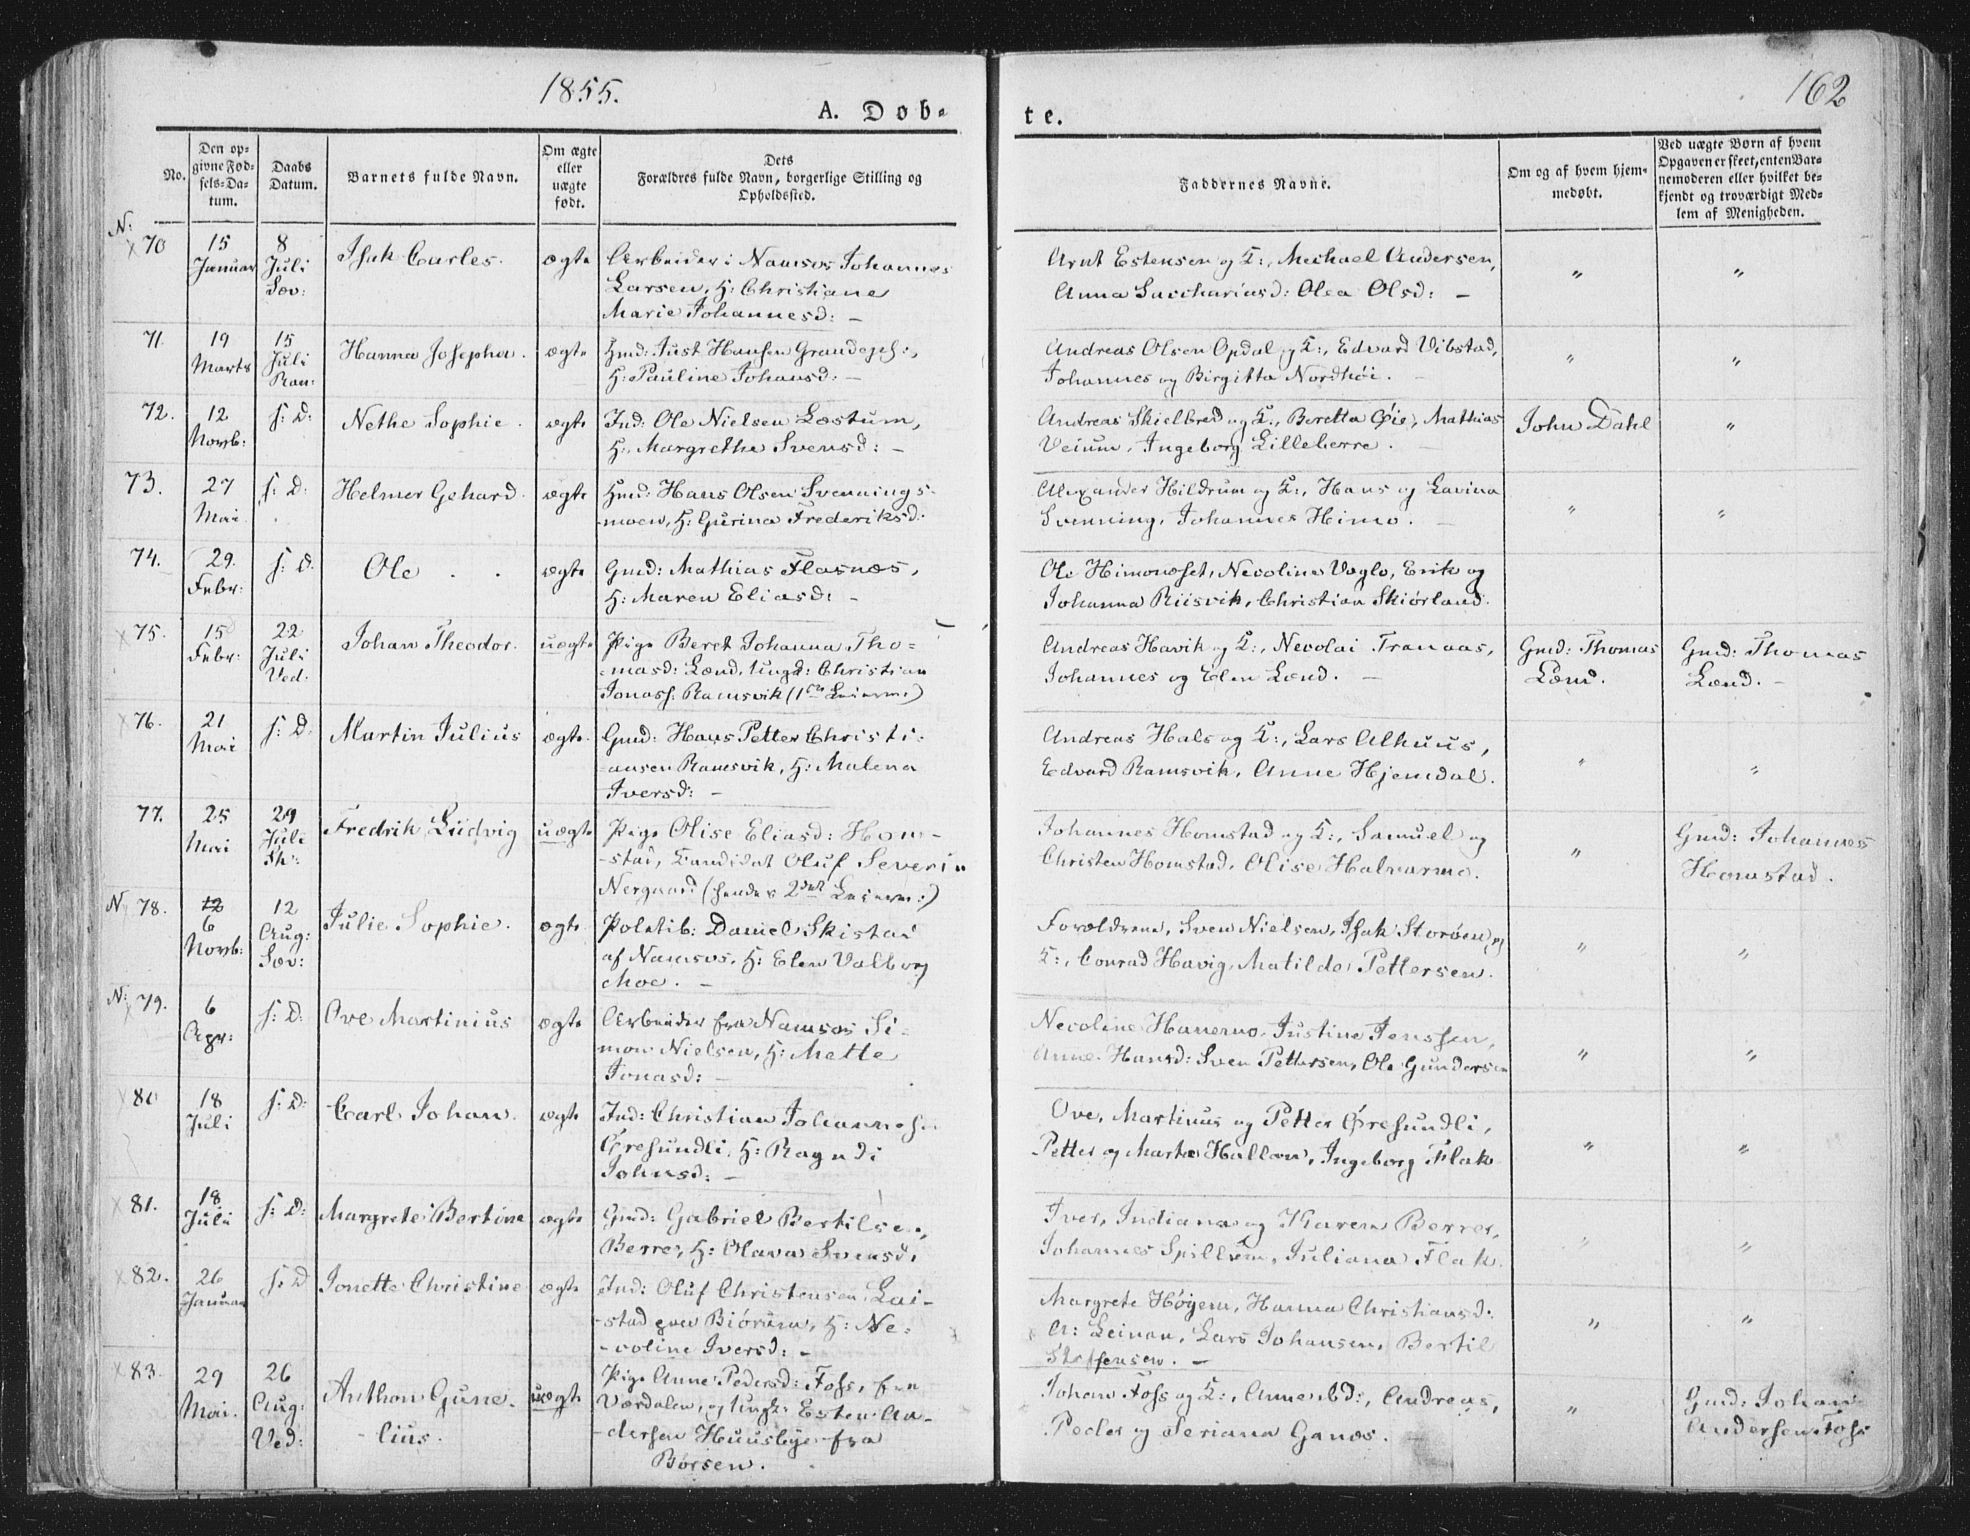 1855.
162
A. Døb-
te.
No.
Den op-
givne Fød-
sels-Da-
tum.
Daabs
Datum.
Barnets fulde Navn.
Om ægte
eller
uægte
født.
Dets
Forældres fulde Navn, borgerlige Stilling og
Opholdssted.
Faddernes Navne.
Om og af hvem hjem-
medøbt.
Ved uægte Børn af hvem
Opgaven er skeet, enten Bar-
nemoderen eller hvilket be-
kjendt og troværdigt Med-
lem af Menigheden.
N:
70 15 Januar 8 Juli Sæv: Isak Carles. ægte
Arbeider i Namsos Johannes
Larsen, H: Christiane
Marie Johannesd: –
Arnt Estensen og K:, Michael Andersen,
Anna Sacchariasd: Olea Olsd: –
" "
71. 19 Marts 15 Juli Ran: Hanna Josepha. ægte
Hmd: Just Hansen
H: Pauline Johansd: –
Andreas Olsen Opdal og K:, Edvard Vibstad,
Johannes og Birgitta Nordhøi. –
" "
72. 12 Novb: s: D: Nethe Sophie. ægte
Ind: Ole Nielsen Læstum,
H: Margrethe Svensd: –
Andreas Skielbred og K:, Beretta Øie, Mathias
Veium, Ingeborg Lilleberre. –
John Dahl "
73. 27 Mai s: D: Helmer Gehard. ægte
Hmd: Hans Olsen Svennings-
-moen, H: Gurina Frederiksd:
Alexander Hildrum og K:, Hans og Lavina
Svenning, Johannes Himo. –
" "
74. 29. Febr: s: D: Ole . . ægte
Gmd: Mathias Flasnæs,
H: Maren Eliasd: –
Ole Himonæset, Necoline Vaglo, Erik og
Johanna Riisvik, Christian Skiørland.
75. 15 Febr: 22 Juli Ved: Johan Theodor. uægte
Pige Beret Johanna Tho=
-masd: Lænd, Ungk: Christian
Jonass: Ramsvik (1ste Leierm:)
Andreas Havik og K:, Necolai Tranaas,
Johannes og Elen Lænd. –
Gmd: Thomas
Lænd.
Gmd: Thomas
Lænd. –
76. 21 Mai s: D: Martin Julius ægte.
Gmd: Hans Petter Christi=
-ansen Ramsvik, H: Malena
Iversd: –
Andreas Hals og K:, Lars Alhuus,
Edvard Ramsvik, Anne Hjemdal.
" "
77. 25 Mai 29 Juli Sk: Fredrik Ludvig uægte
Pige Olise Eliasd: Hom-
-stad, Kandidat Oluf Severin
Nergaard (hendes 2det Leierm:)
Johannes Homstad og K:, Samuel og
Christen Homstad, Olise Halvarmo.
"
Gmd: Johannes
Homstad.
N: 78. 12 6 Novb: 12 Aug: Sæv: Julie Sophie. ægte
Politib: Daniel Skistad
af Namsos, H: Elen Valborg
Moe. –
Forældrene, Sven Nielsen, Isak Storøen og
K:, Conrad Havig, Matilde Pettersen.
" "
N: 79. 6 Apr: s: D: Ove Martinius ægte
Arbeider fra Namsos Si=
mon Nielsen, H: Mette
Jonasd: –
Necoline Hanemo, Justine Jenssen,
Anne Hansd: Sven Pettersen, Ole Gundersen
" "
80 18 Juli s: D: Carl Johan. ægte
Ind: Christian Johannes:
Øresundli, H: Ragndi
Johnsd: –
Ove, Martinus og Petter Øresundli,
Petter og Marta Hallan, Ingeborg Flak
" "
81. 18 Juli s: D: Margrete Bertine ægte
Gmd: Gabriel Bertilsen,
Berre, H: Olava Svensd:
Iver, Indiana og Karen Berre,
Johannes Spillum, Juliana Flak.
" "
82. 26 Januar s: D Jonette Christine ægte
Ind: Oluf Christensen Lai-
-stad paa Biørum, H: Ne=
-coline Iversd: –
Margrete Høyem, Hanna Christiansd:
A: Leinan, Lars Johansen, Bertil
Steffensen. –
" "
83. 29 Mai. 26 Aug: Ved: Anthon Gune- uægte
-lius.
Pige Anne Pedersd: Foss, fra
Værdalen, og Ungk: Esten An-
-dersen Huusbye fra
Børsen.
Johan Foss og K:, Anne Ad:, Andreas,
Peder og Seriana Ganæs.
"
Gmd: Johan
Andersen Foss